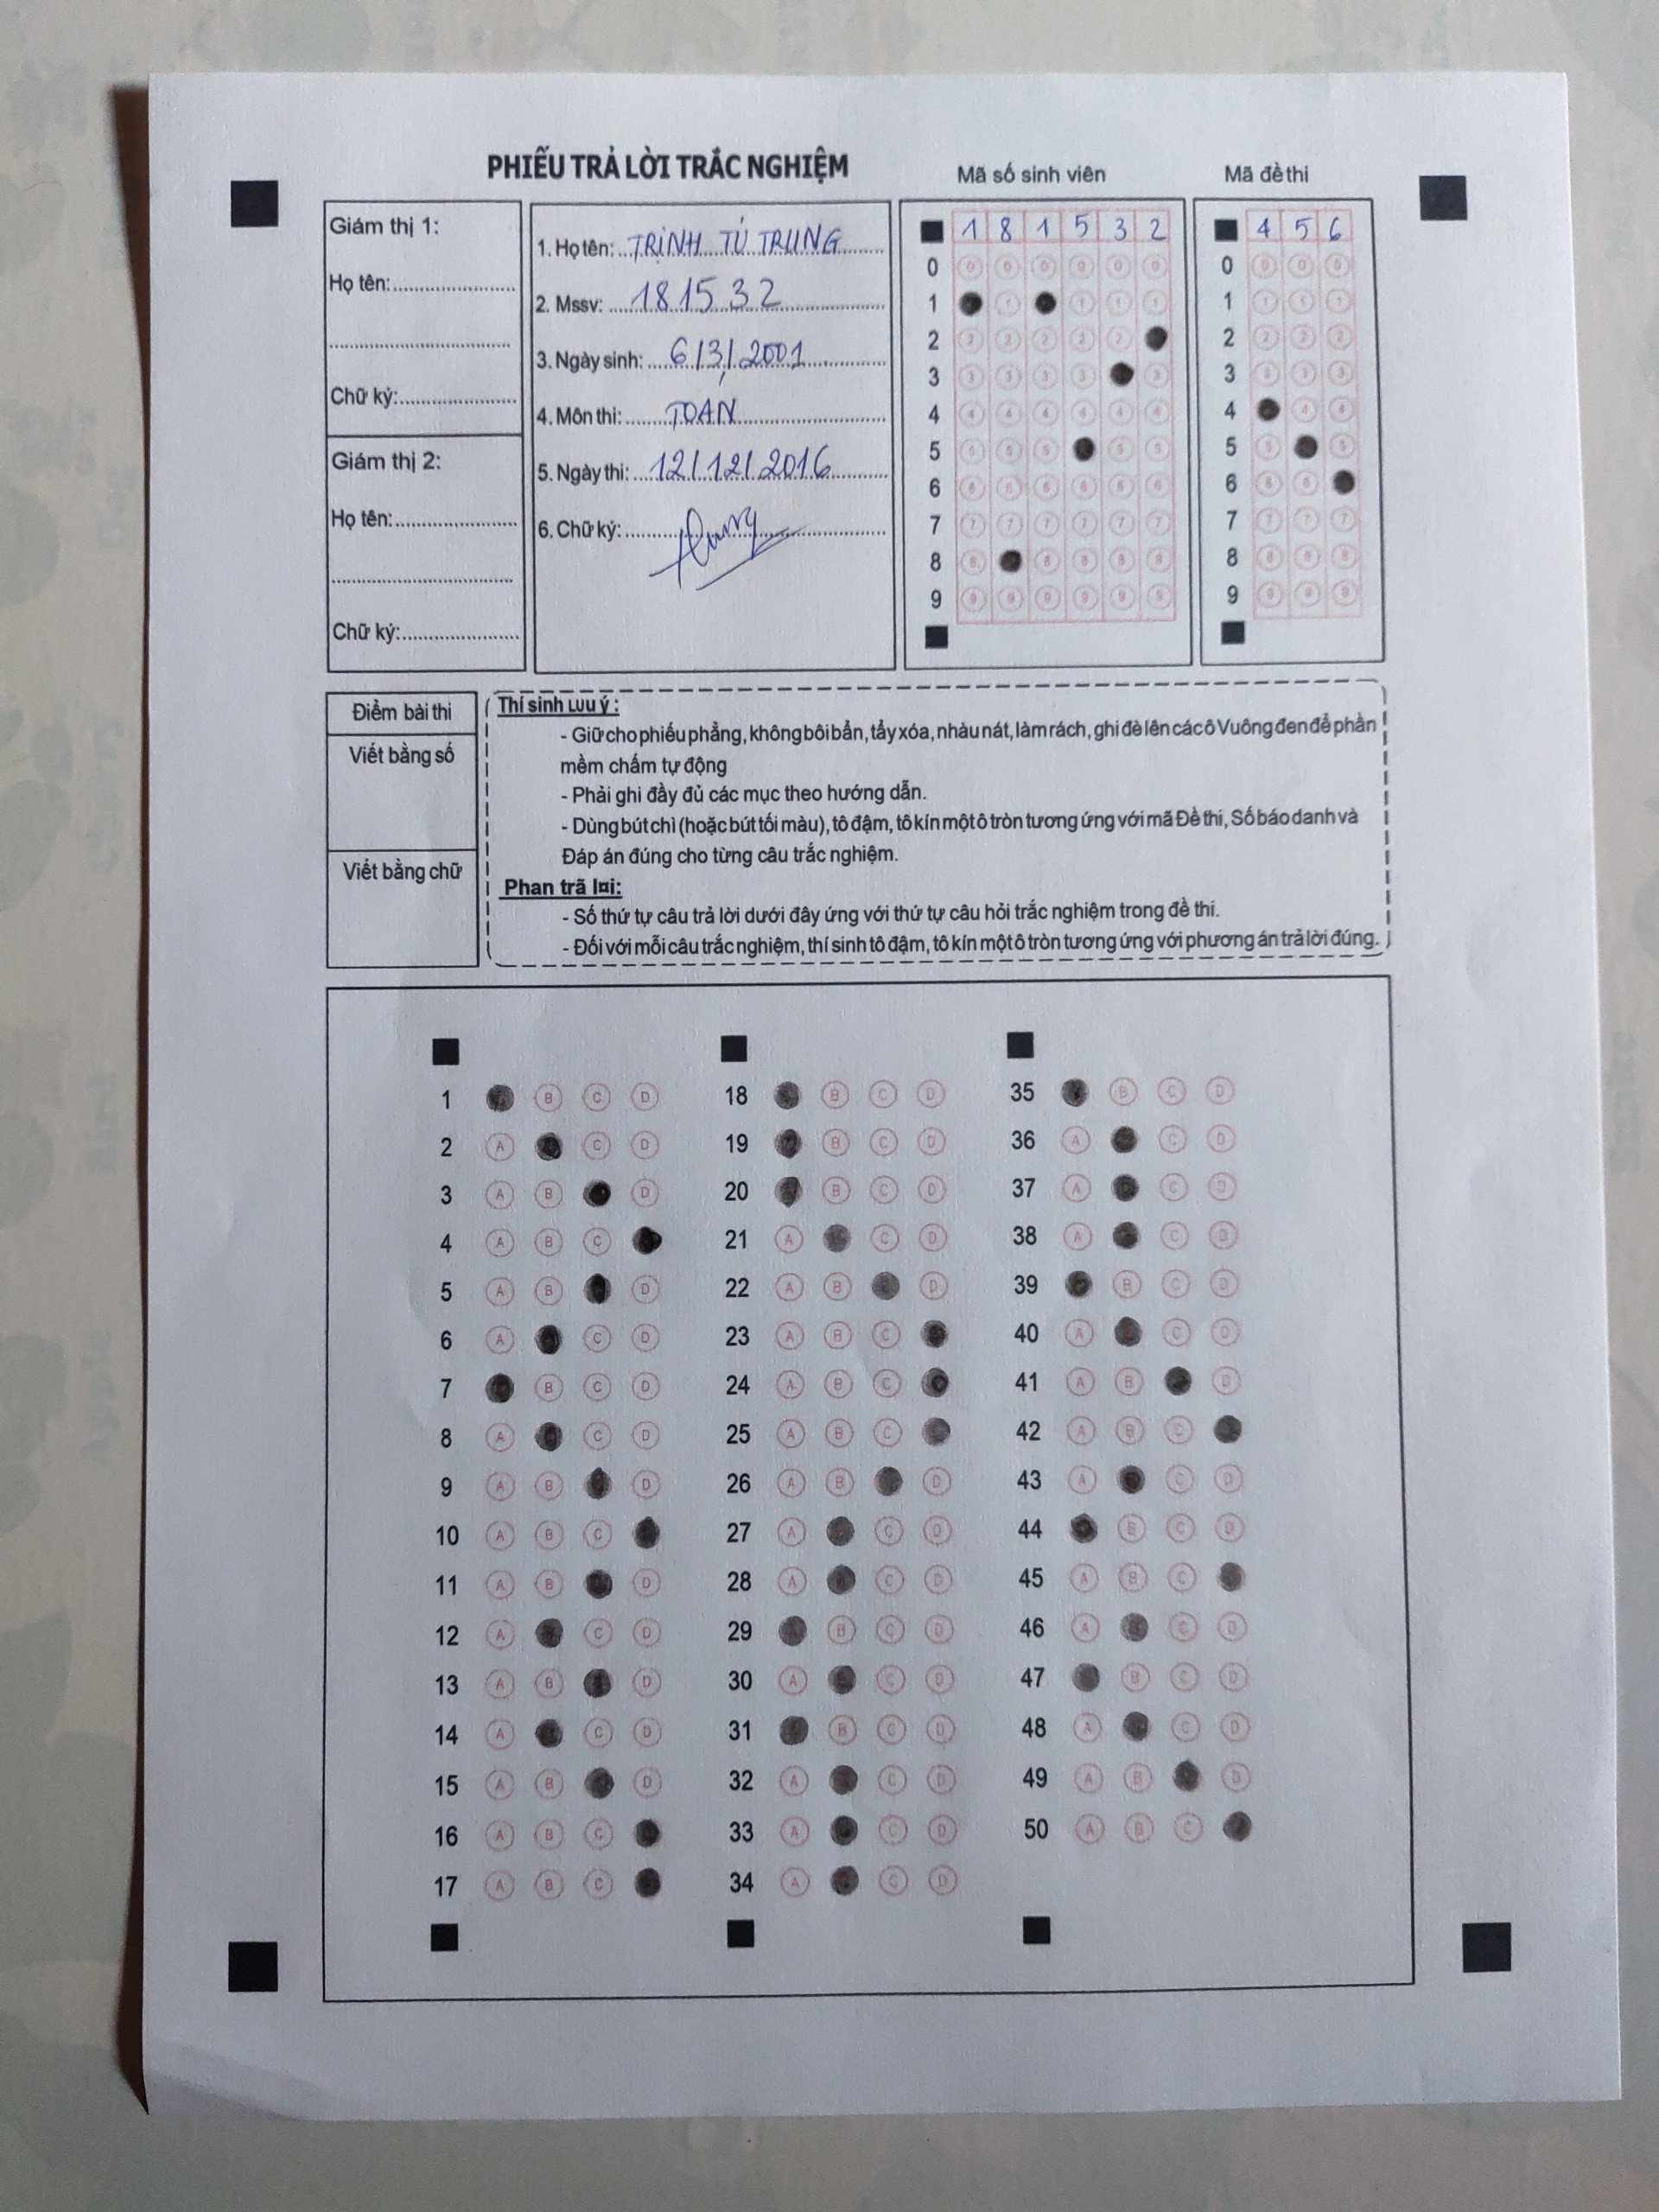 PHIẾU TRẢ LỜI TRẮC NGHIỆM
Mã số sinh viên
Mã đề thi
Giám thị 1:
Họ tên:
Chữ ký:
Giám thị 2:
Họ tên:
Chữ ký:
1. Họ tên: TRỊNH TÚ TRUNG
2. Mssv: 181532
3. Ngày sinh: 6/3/2001
4. Môn thi: TOÁN
5. Ngày thi: 12/12/2016
6. Chữ ký:
1 8 1 5 3 2
0
1
2
3
4
5
6
7
8
9
4 5 6
0
1
2
3
4
5
6
7
8
9
Điểm bài thi
Viết bằng số
Viết bằng chữ
Thí sinh Lưu ý :
- Giữ cho phiếu phẳng, không bôi bẩn, tẩy xóa, nhàu nát, làm rách, ghi đè lên các ô Vuông đen để phần
mềm chấm tự động
- Phải ghi đầy đủ các mục theo hướng dẫn.
- Dùng bút chì (hoặc bút tối màu), tô đậm, tô kín một ô tròn tương ứng với mã Đề thi, Số báo danh và
Đáp án đúng cho từng câu trắc nghiệm.
Phan trã l¤i:
- Số thứ tự câu trả lời dưới đây ứng với thứ tự câu hỏi trắc nghiệm trong đề thi.
- Đối với mỗi câu trắc nghiệm, thí sinh tô đậm, tô kín một ô tròn tương ứng với phương án trả lời đúng.
1 B C D
2 A C D
3 A B D
4 A B C
5 A B D
6 A C D
7 B C D
8 A C D
9 A B D
10 A B C
11 A B D
12 A C D
13 A B D
14 A C D
15 A B D
16 A B C
17 A B C
18 B C D
19 B C D
20 B C D
21 A C D
22 A B D
23 A B C
24 A B C
25 A B C
26 A B D
27 A C D
28 A C D
29 B C D
30 A C D
31 B C D
32 A C D
33 A C D
34 A C D
35 B C D
36 A C D
37 A C D
38 A C D
39 B C D
40 A C D
41 A B D
42 A B C
43 A C D
44 B C D
45 A B C
46 A C D
47 B C D
48 A C D
49 A B D
50 A B C